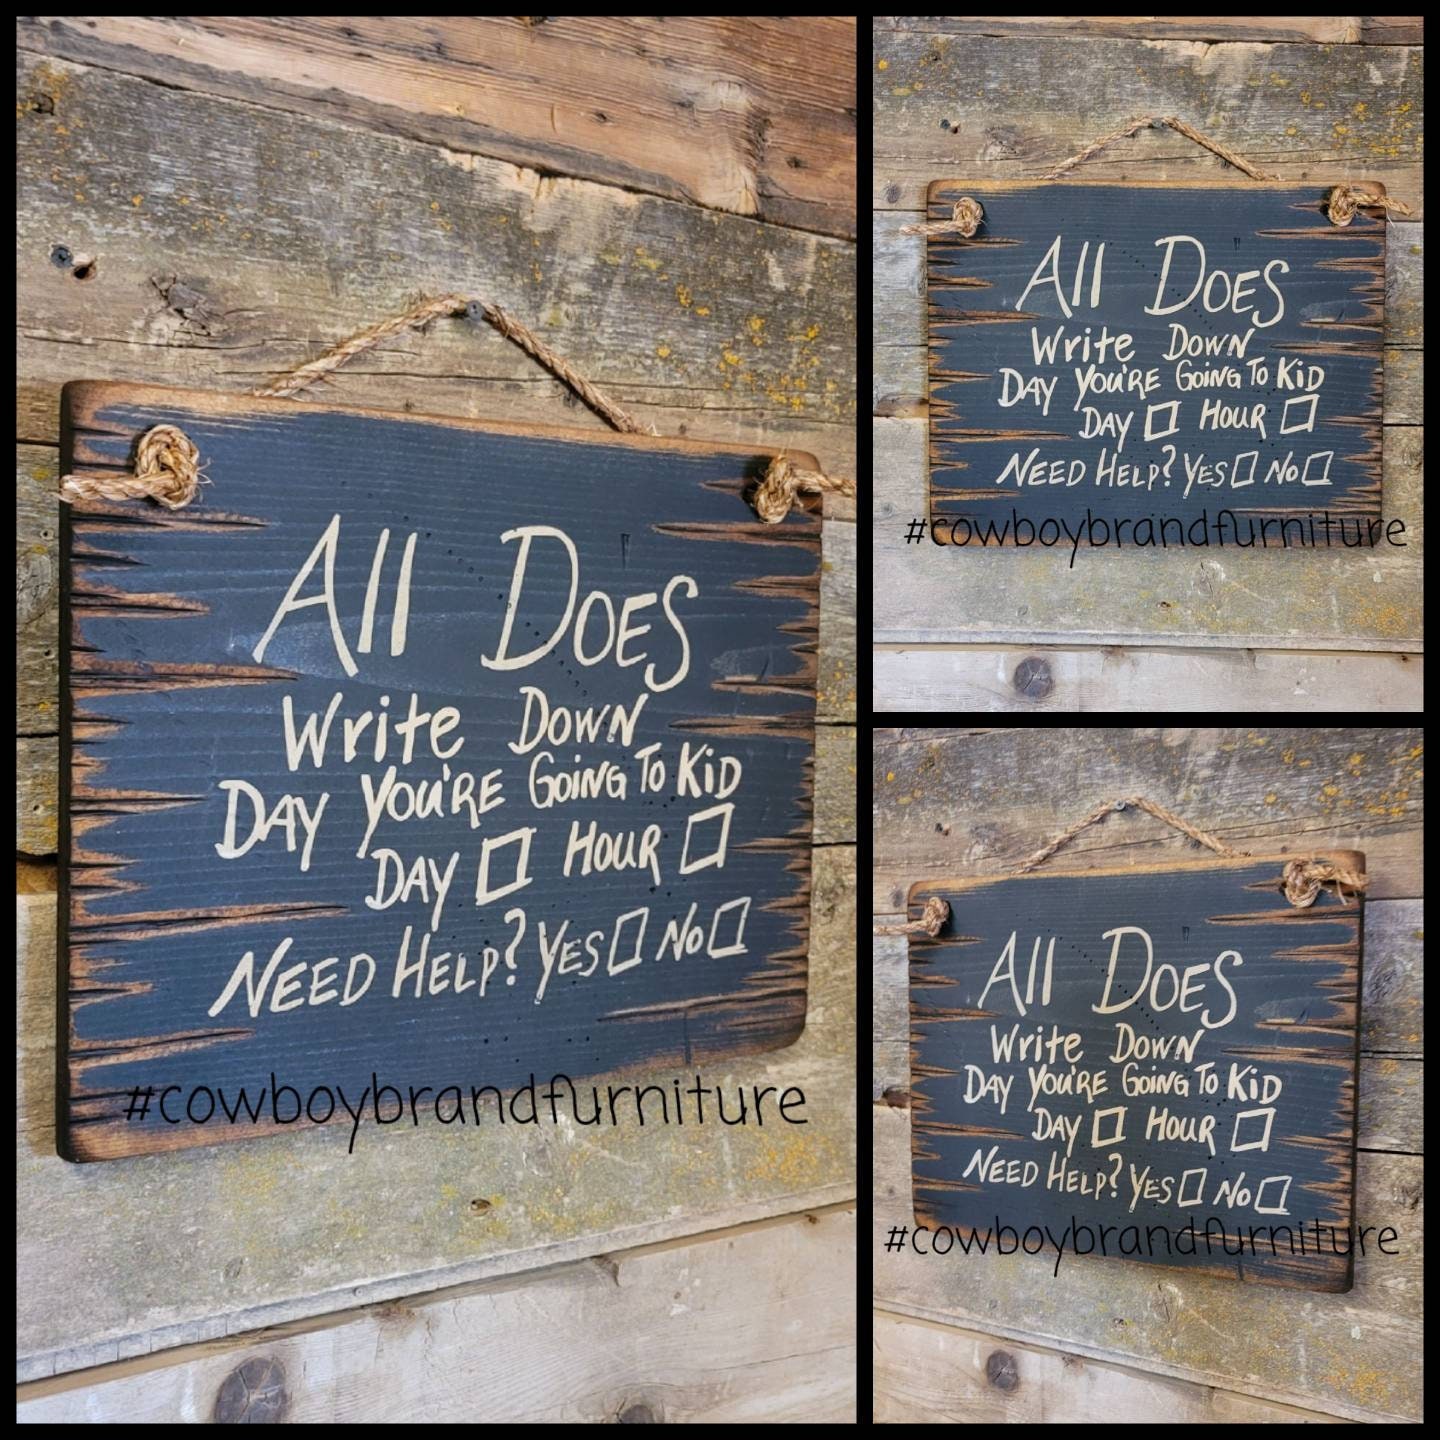 All Does
Write Down
Day You're Going To Kid
Day □ Hour □
Need Help? Yes □ No □
#cowboybrandfurniture
All Does
Write Down
Day You're Going To Kid
Day □ Hour □
Need Help? Yes □ No □
#cowboybrandfurniture
All Does
Write Down
Day You're Going To Kid
Day □ Hour □
Need Help? Yes □ No □
#cowboybrandfurniture